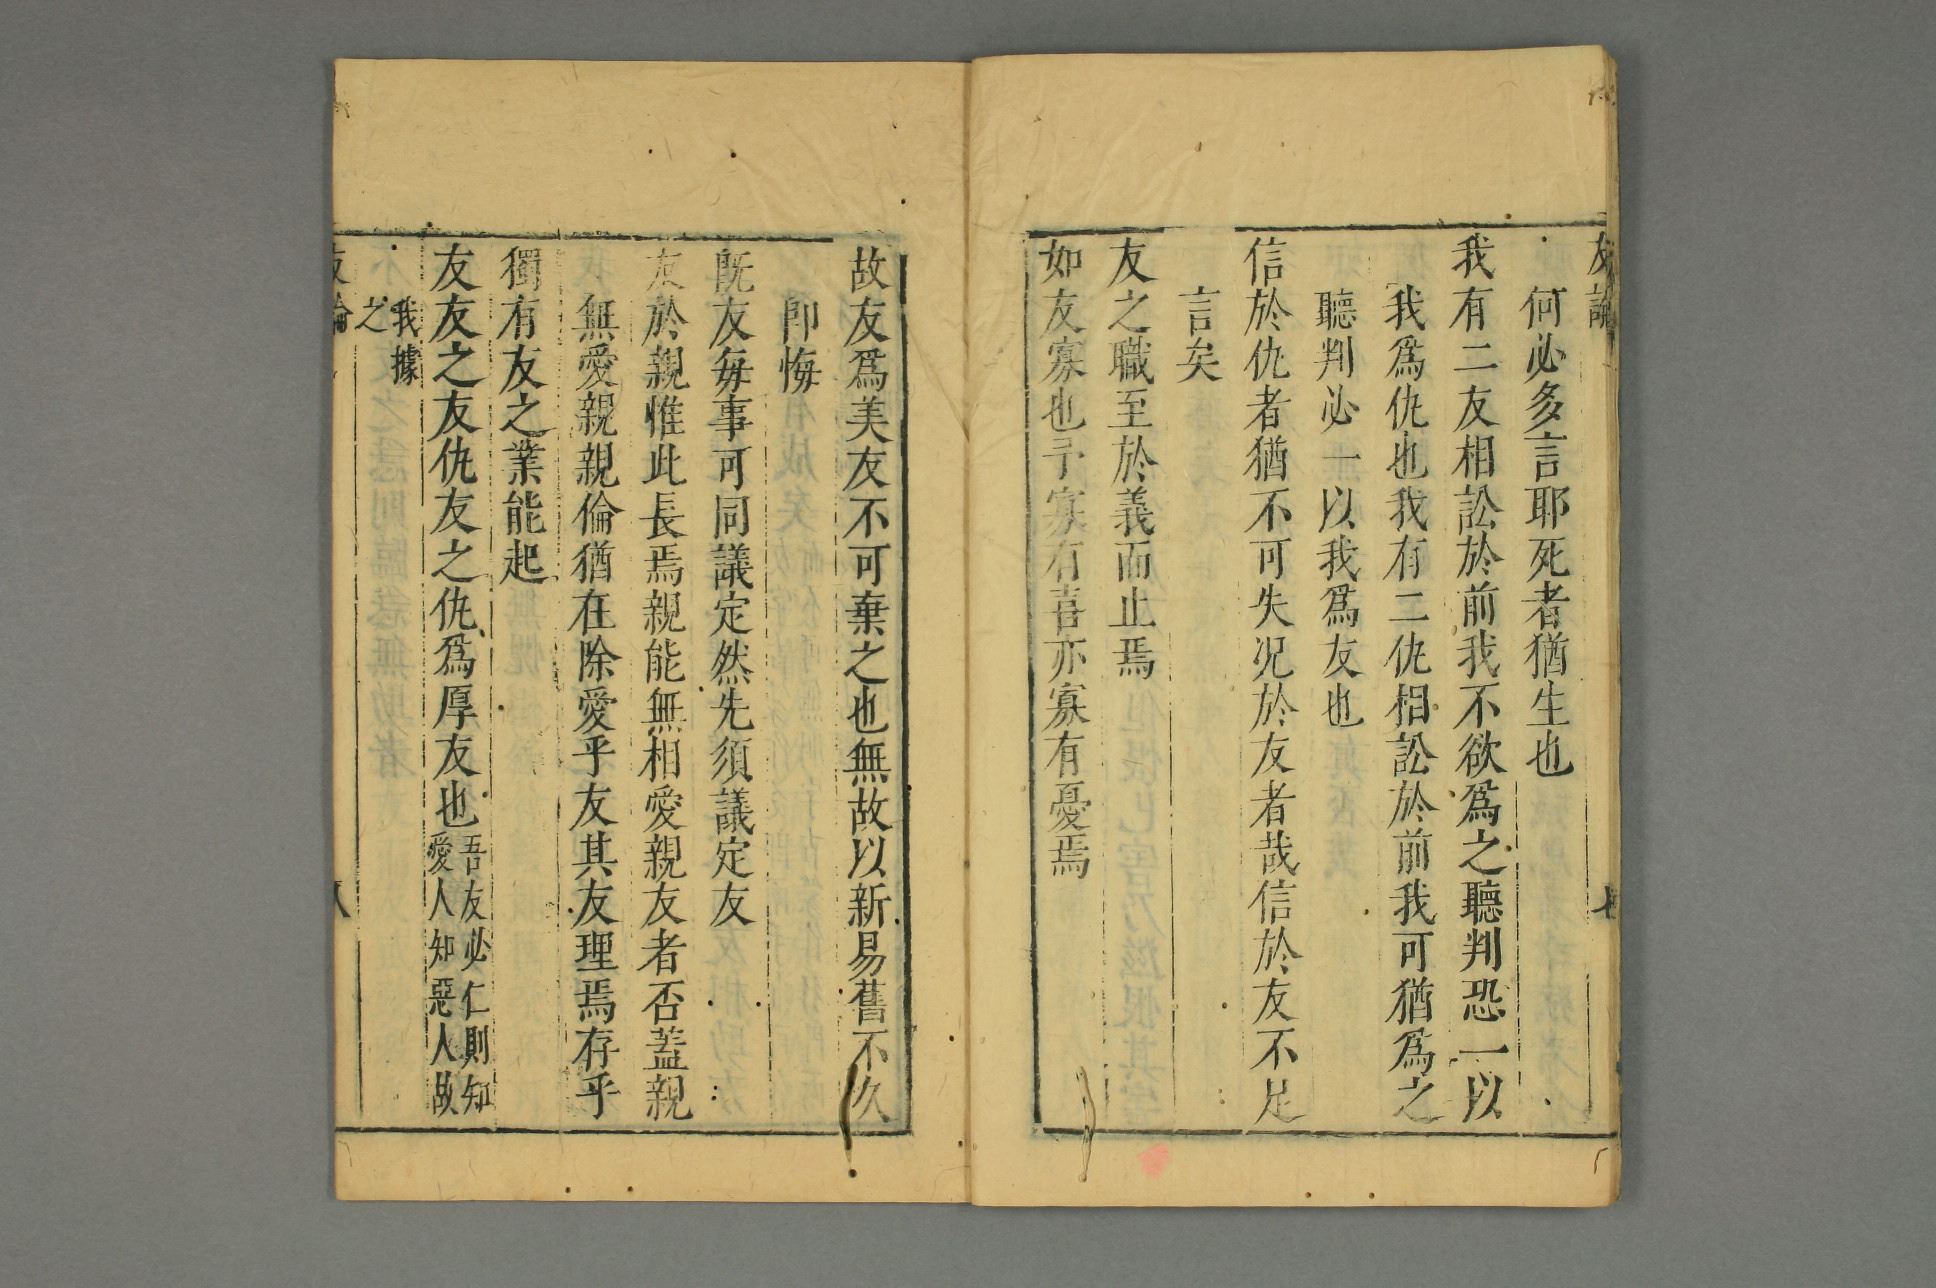 友論
七
何必多言耶死者猶生也
我有二友相訟於前我不欲爲之聽判恐一以
我爲仇也我有二仇相訟於前我可猶爲之
聽判必一以我爲友也
信於仇者猶不可失况於友者哉信於友不足
言矣
友之職至於義而止焉
如友寡也予寡有喜亦寡有憂焉
故友爲美友不可棄之也無故以新易舊不久
卽悔
旣友每事可同議定然先須議定友
友於親惟此長焉親能無相愛親友者否蓋親
無愛親親倫猶在除愛乎友其友理焉存乎
獨有友之業能起
友友之友仇友之仇爲厚友也吾友必仁則知
愛人知惡人故
我據
之
友論
八